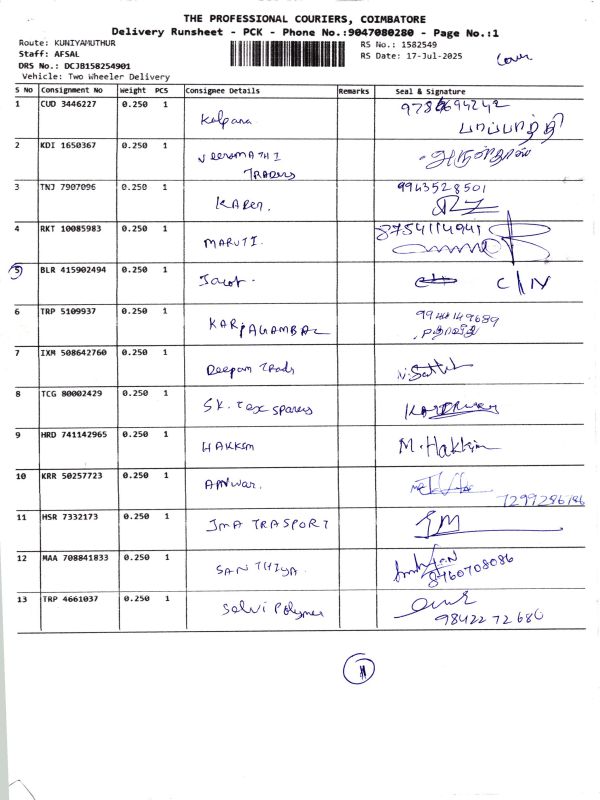 THE PROFESSIONAL COURIERS, COIMBATORE
Delivery Runsheet - PCK - Phone No.:9047080280 - Page No.:1
Route: KUNIYAMUTHUR
RS No.: 1582549
Staff: AFSAL
RS Date: 17-Jul-2025
Cover
DRS No.: DCJB158254901
Vehicle: Two Wheeler Delivery
S No Consignment No Weight PCS Consignee Details Remarks Seal & Signature
1 CUD 3446227 0.250 1 Kalpana
பாப்பாத்தி
2 KDI 1650367 0.250 1 VEERAMATHI TRADERS
3 TNJ 7907096 0.250 1 KAREN. 9943528501
4 RKT 10085983 0.250 1 MARUTI. 8754114941
5 BLR 415902494 0.250 1 Jacob. C/N
6 TRP 5109937 0.250 1 KARPAGAMBAL 9944149689
7 IXM 508642760 0.250 1 Deepam Trads
8 TCG 80002429 0.250 1 SK. Tex spares
9 HRD 741142965 0.250 1 HAKKIM M. Hakkim
10 KRR 50257723 0.250 1 ANWAR. 7299286786
11 HSR 7332173 0.250 1 JMA TRASPORT JM
12 MAA 708841833 0.250 1 SANTHIYA. 8760708086
13 TRP 4661037 0.250 1 Selvi Polymer
98422 72680